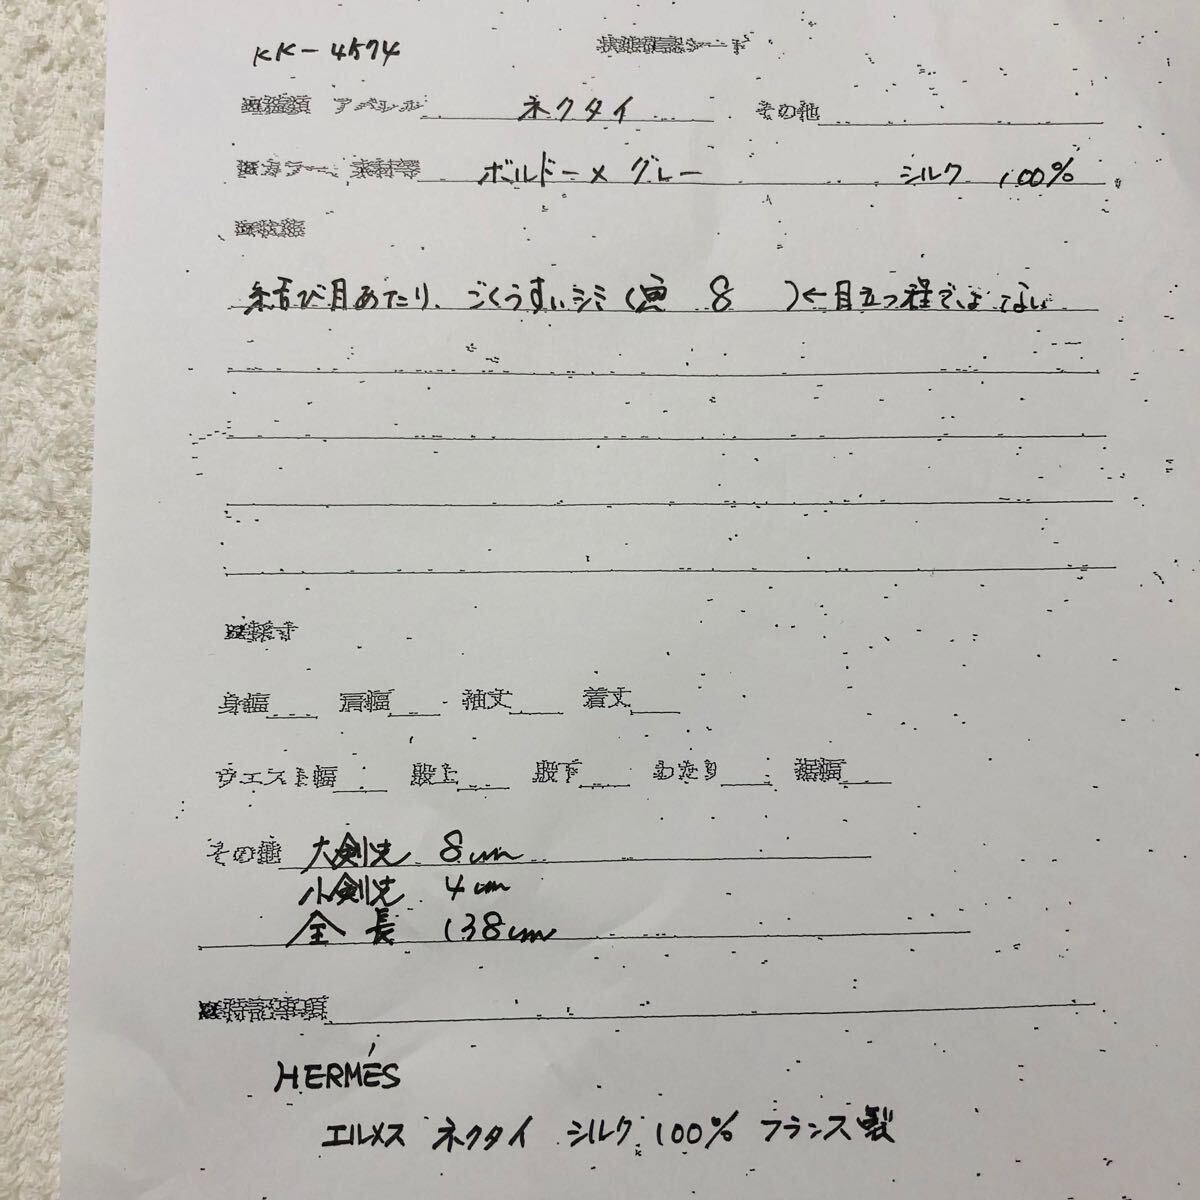 KK-4574 状態確認シート
■種類 アパレル ネクタイ その他
■カラー、素材等 ボルドー×グレー シルク 100%
■状態
結び目あたり、ごくうすいシミ(画 8 )←目立つ程ではない
■採寸
身幅 肩幅 袖丈 着丈
ウエスト幅 股上 股下 わたり 裾幅
その他 大剣先 8cm
小剣先 4cm
全長 138cm
■特記事項
HERMÉS
エルメス ネクタイ シルク 100% フランス製